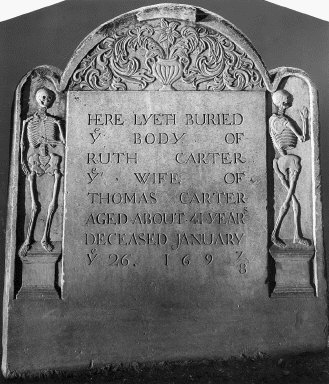 HERE LYETH BURIED
yᵉ BODY OF
RUTH CARTER
yᵉ WIFE OF
THOMAS CARTER
AGED ABOUT 41 YEARS
DECEASED JANUARY
yᵉ 26. 169 7/8